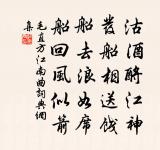 沽酒酹江神
發船相送餞
船去浪如席
船回風似箭
毛直方江南曲詞典網
集